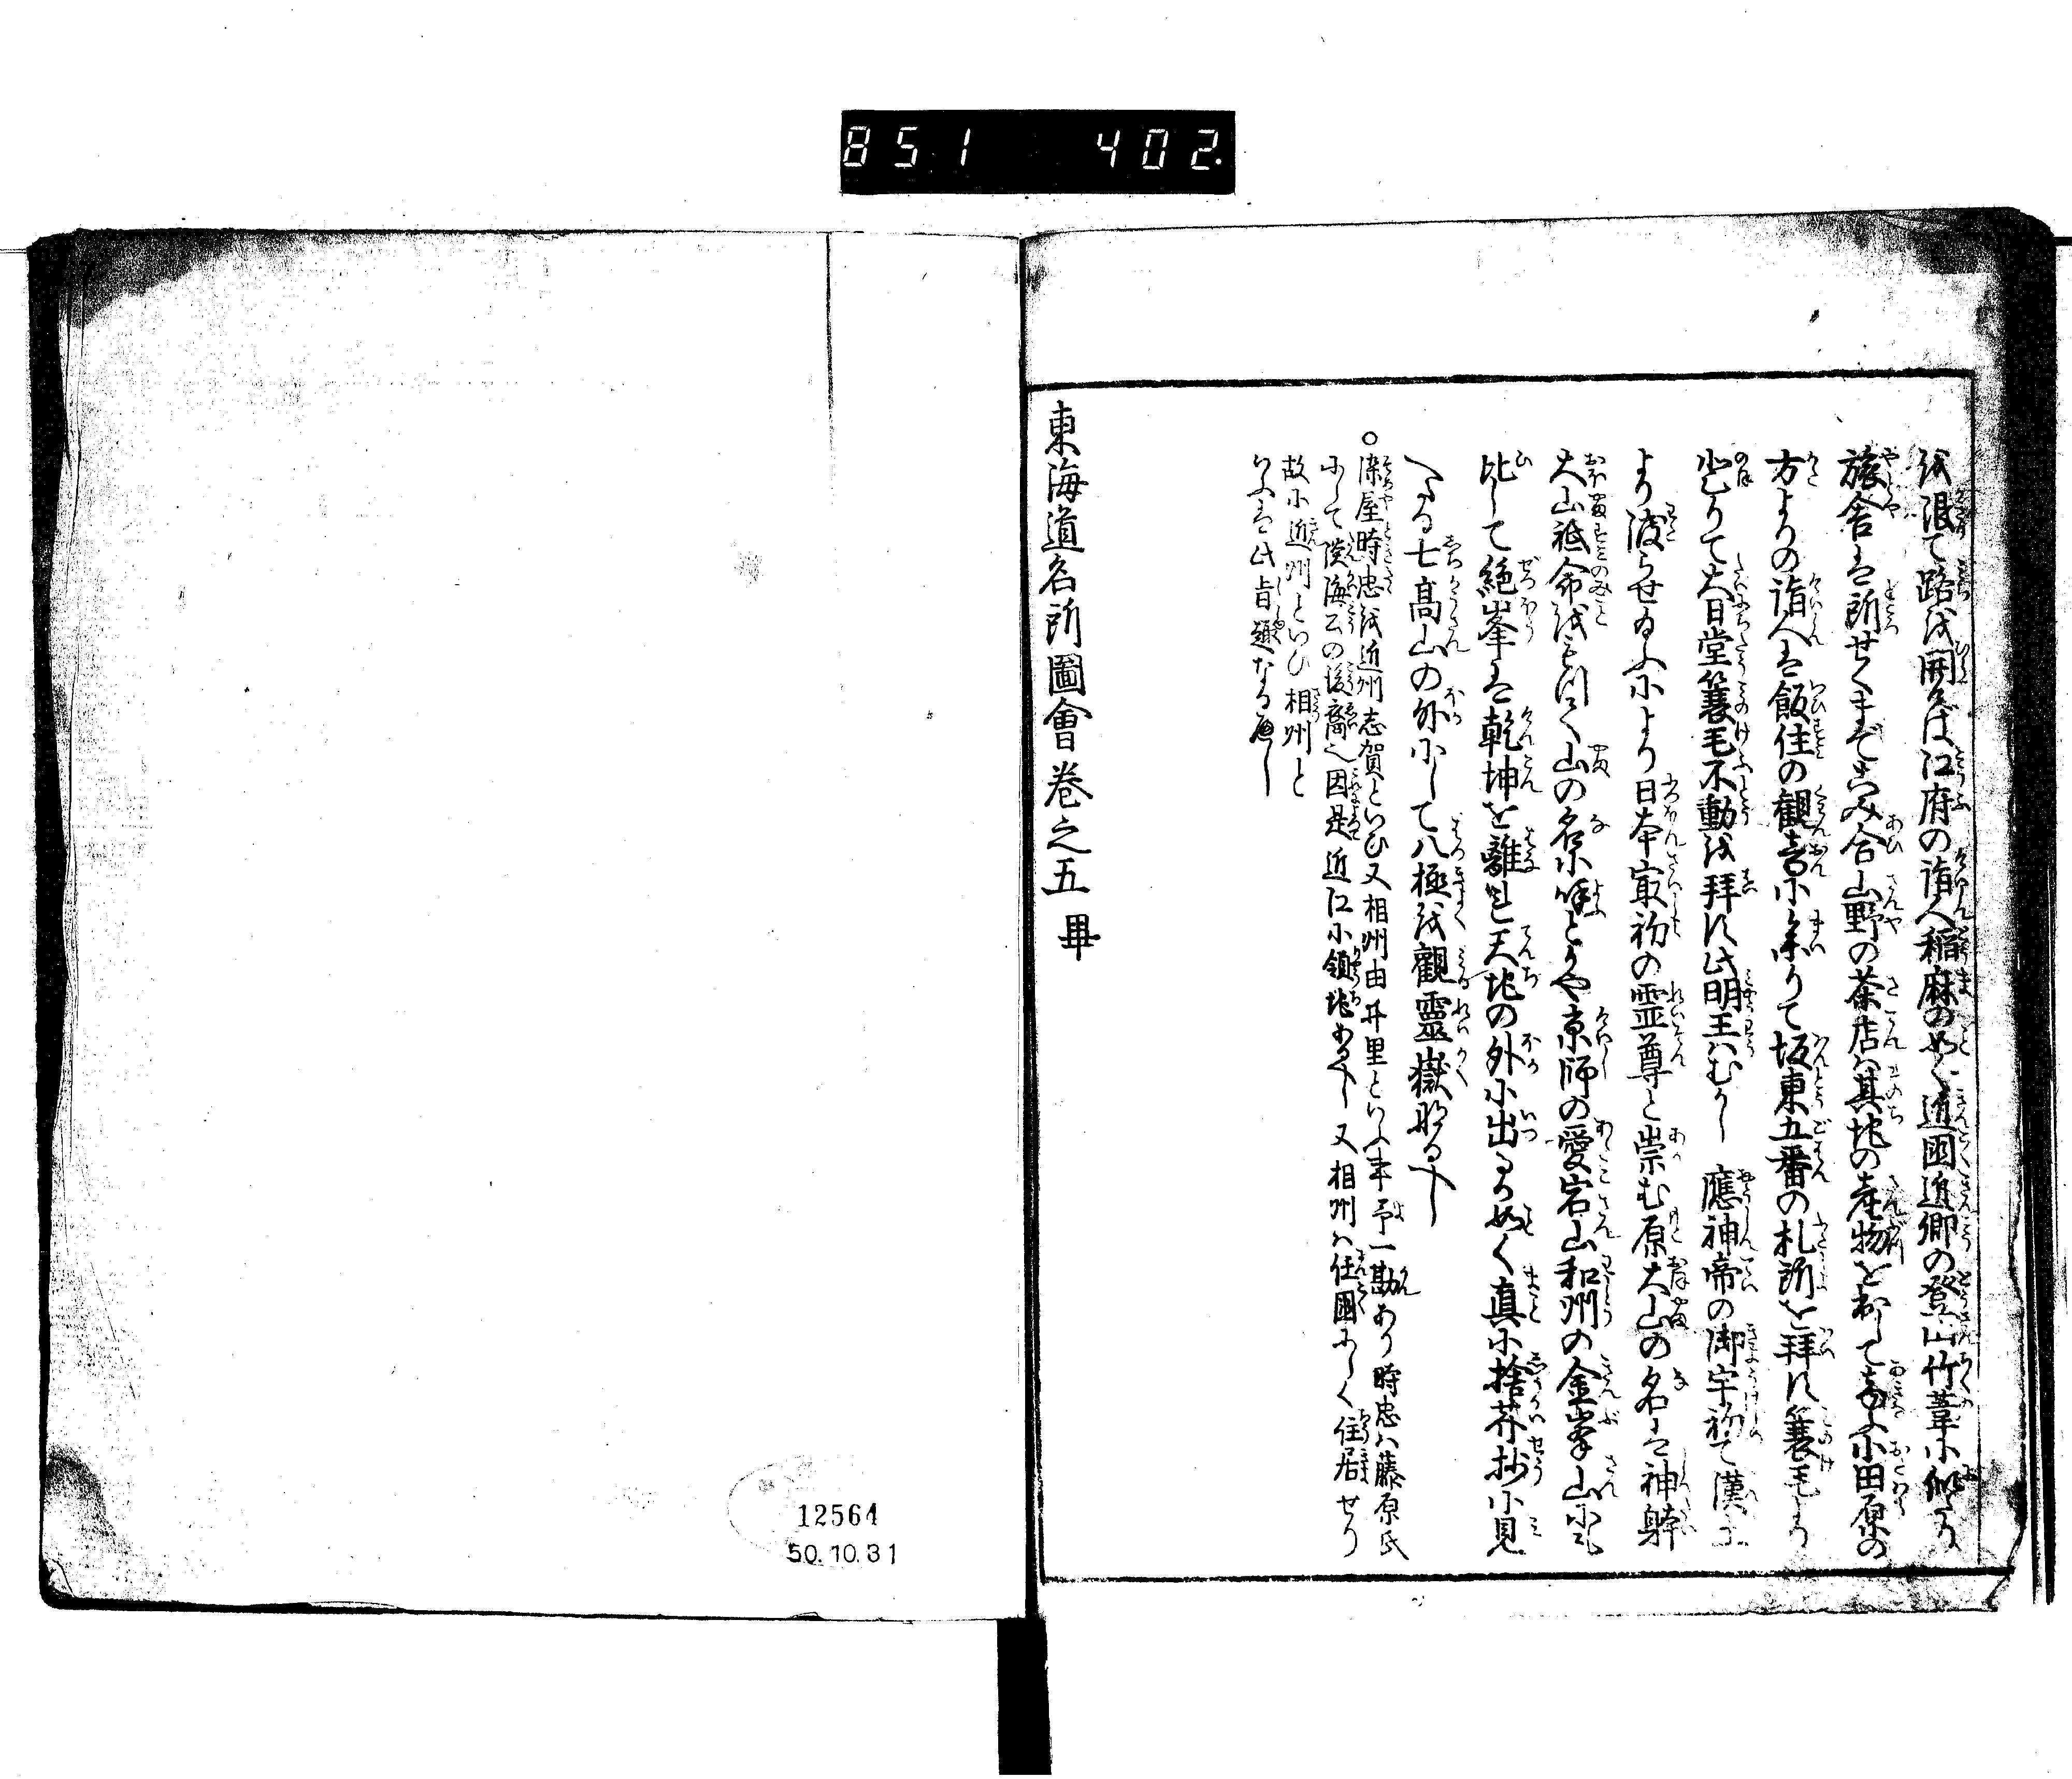 851 402.
を限て路を開けば江府の詣人稲麻の如く近国近郷の登山竹葦に似たり
旅舎は所せくまでこみ合山野の茶店は其地の産物を出して商ふ小田原の
方よりの詣人は飯住の観音に参りて坂東五番の札所を拝す簑毛より
登りて大日堂簑毛不動を拝す此明王はむかし 應神帝の御宇初て漢土
より渡らせ給ふにより日本最初の霊尊と崇む原大山の名は神躰
大山祇命をもつて山の名に呼とかや京師の愛宕山和州の金峯山に
比して絶峯は乾坤を離れ天地の外に出るが如く真に拾芥抄に見
へたる七高山の外にして八極を観霊嶽なるべし
○染屋時忠を近州志賀といひ又相州由井里といふ事予一勘あり時忠は藤原氏
にして淡海公の後裔也因是近江に領地あるべし又相州は任国にして住居せり
故に近州といひ相州と
いふは此旨趣なるべし
東海道名所圖會巻之五 畢
12564
50.10.31